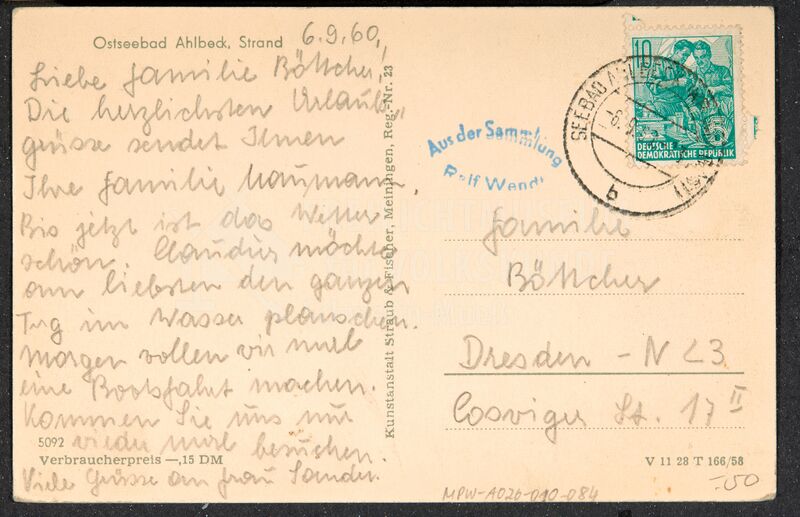 Ostseebad Ahlbeck, Strand
6.9.60,
Liebe Familie Böttcher!
Die herzlichsten Urlaubs-
grüsse sendet Ihnen
Ihre Familie Naumann.
Bis jetzt ist das Wetter
schön. Claudius möchte
am liebsten den ganzen
Tag im Wasser planschen.
Morgen wollen wir mal
eine Bootsfahrt machen.
Kommen Sie uns nur
wieder mal besuchen.
Viele Grüsse an Frau Sander.
5092
Verbraucherpreis —,15 DM
Kunstanstalt Straub & Fischer, Meiningen, Reg.-Nr. 23
Aus der Sammlung
Rolf Wendt
SEEBAD
b
10
5
DEUTSCHE
DEMOKRATISCHE REPUBLIK
Familie
Böttcher
Dresden - N 23
Cosviger St. 17 II
V 11 28 T 166/58
-.50
MPW-A026-010-084